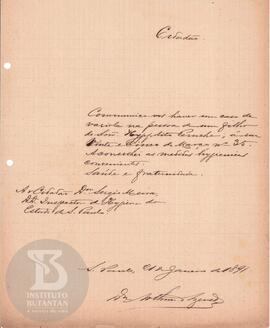 Cidadão
Communico-vos haver um caso de
variola na pessoa de um filho
de Snr. Hyppolito, á rua
Vinte e Cinco de Março nº 35.
Aconselhei as medidas hygienicas
convenientes.
Saúde e fraternidade.
Ao Cidadão Dr. Sergio Meira,
D. Inspector de Hygiene do
Estado de S. Paulo.
S. Paulo, de Janeiro de 1891
Dr.
INSTITUTO
BUTANTAN
A SERVIÇO DA VIDA